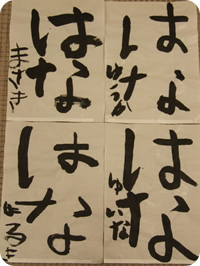 はな
ゆうか
はな
まさき
はな
ゆいな
はな